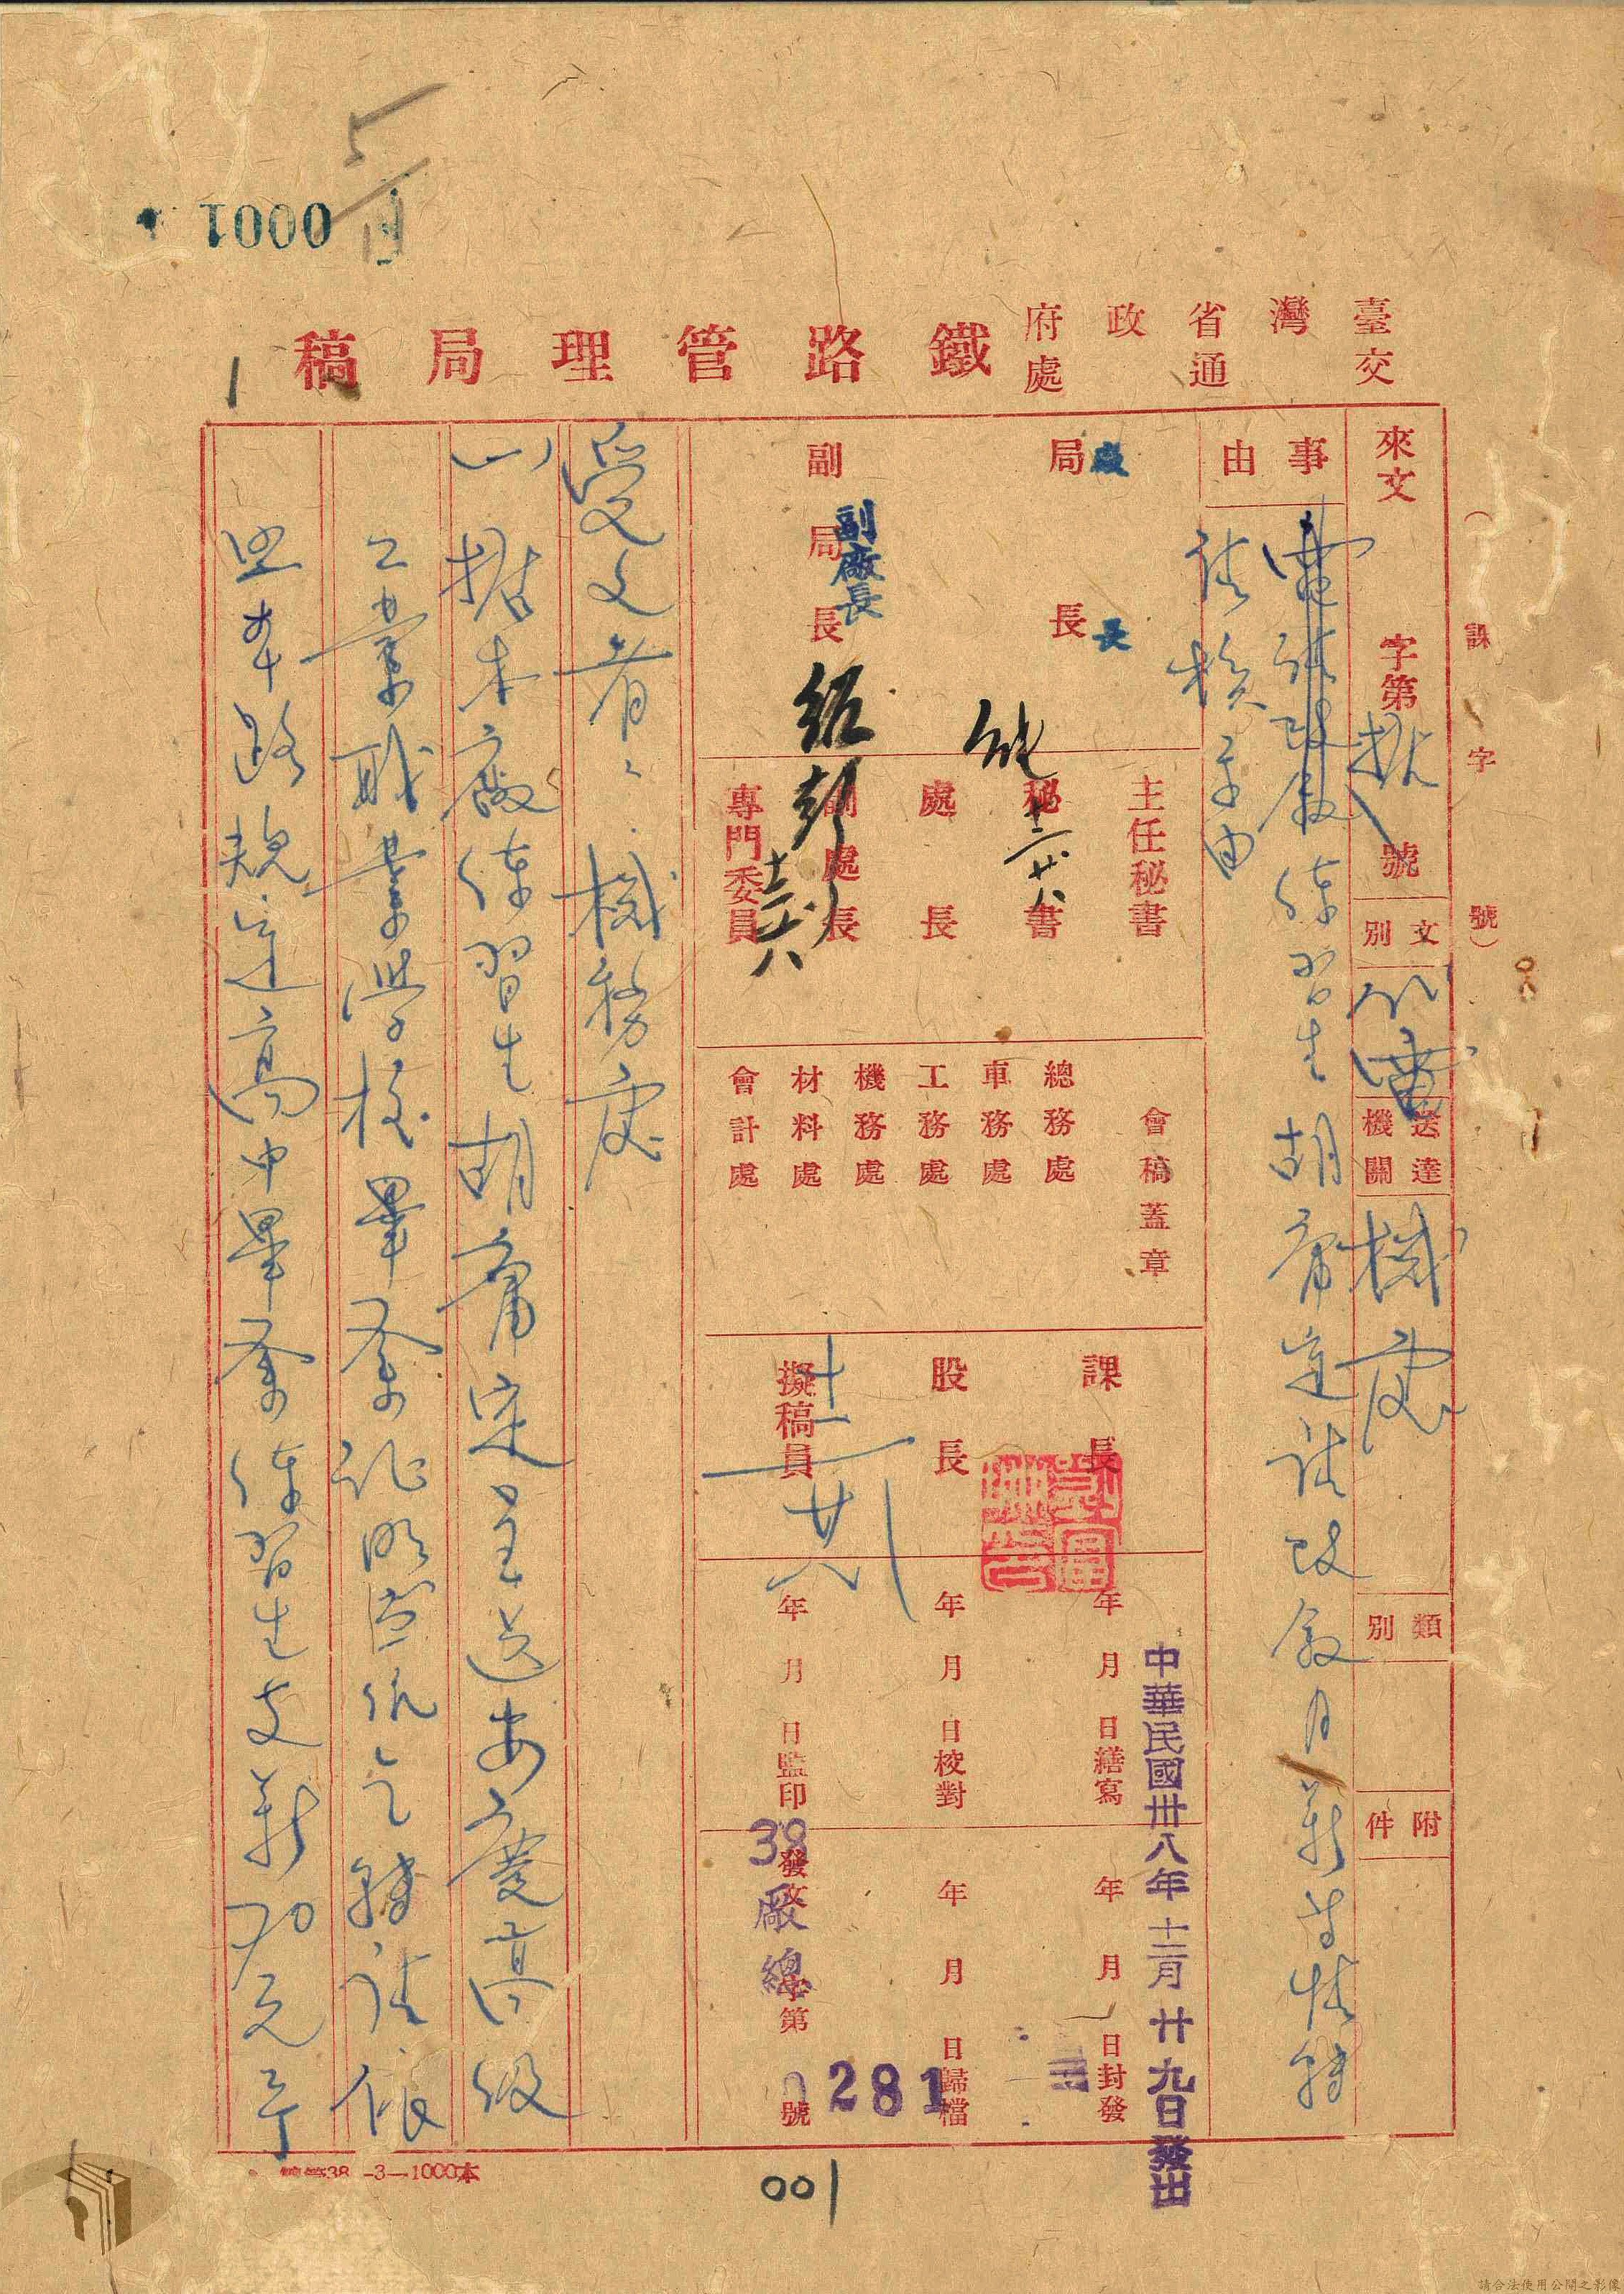 0001
臺灣省政府
交通處
鐵路管理局稿
1
（　課　字　號）
來文　字第　號
文別　代電
送達機關　機處
類別
附件
事由
練習生胡庸定請改敘月薪等情轉
請核示由
局長
廠長
副局長
副廠長
主任秘書
秘書
處長
副處長
專門委員
十二廿八
會稿蓋章
總務處
車務處
工務處
機務處
材料處
會計處
課長
股長
擬稿員
十二廿八
年月日繕寫
年月日校對
年月日監印
年月日封發
年月日歸檔
發文　字第　號
39廠總
0281
中華民國卅八年十二月廿九日發出
受文者：機務處
一、據本廠練習生胡庸定呈送安慶高級
工業職業學校畢業証明書仰乞轉請依
照本路規定高中畢業練習生支薪70元等
38 -3-1000本
001
請合法使用公開之影像